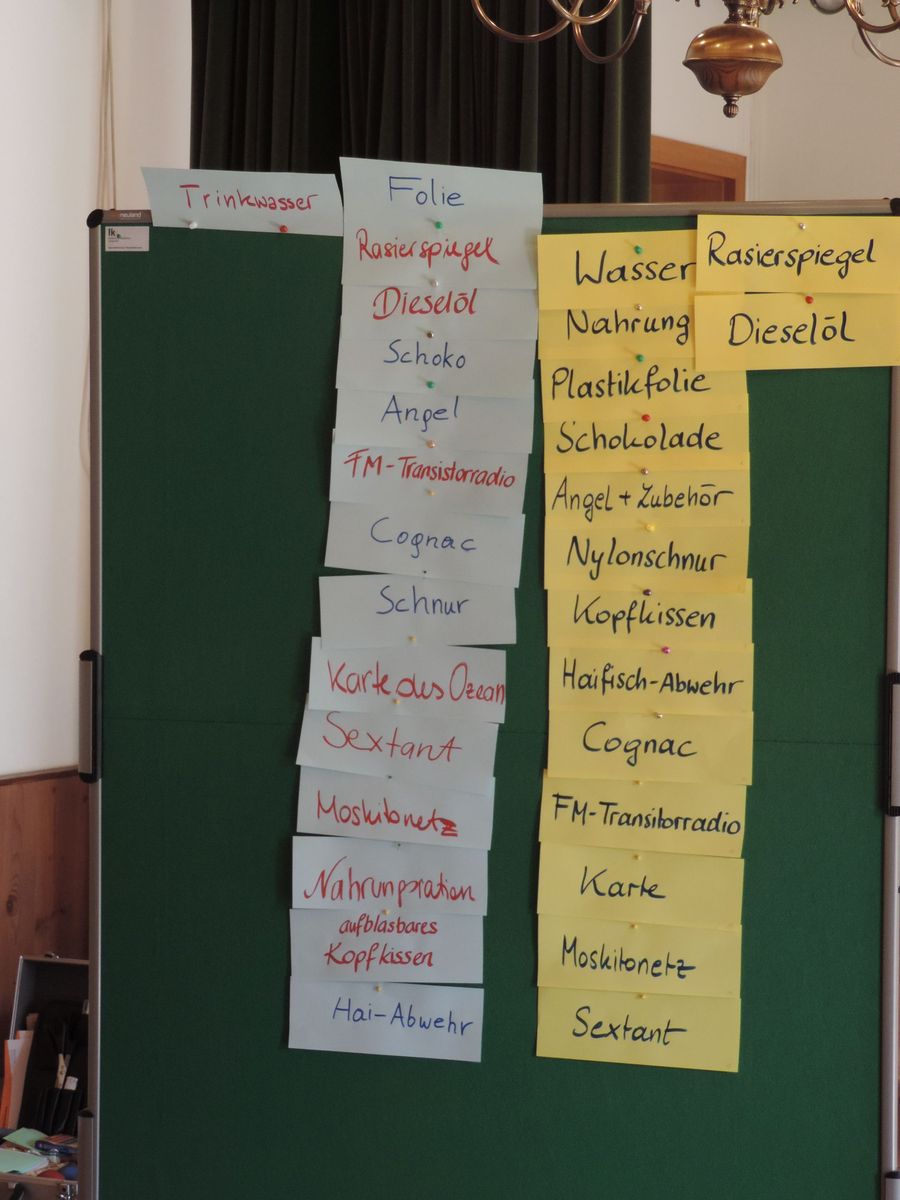 Trinkwasser
Folie
Rasierspiegel
Dieselöl
Schoko
Angel
FM-Transistorradio
Cognac
Schnur
Karte des Ozean
Sextant
Moskitonetz
Nahrungsration
aufblasbares
Kopfkissen
Hai-Abwehr
Wasser
Nahrung
Plastikfolie
Schokolade
Angel + Zubehör
Nylonschnur
Kopfkissen
Haifisch-Abwehr
Cognac
FM-Transitorradio
Karte
Moskitonetz
Sextant
Rasierspiegel
Dieselöl
neuland
lk